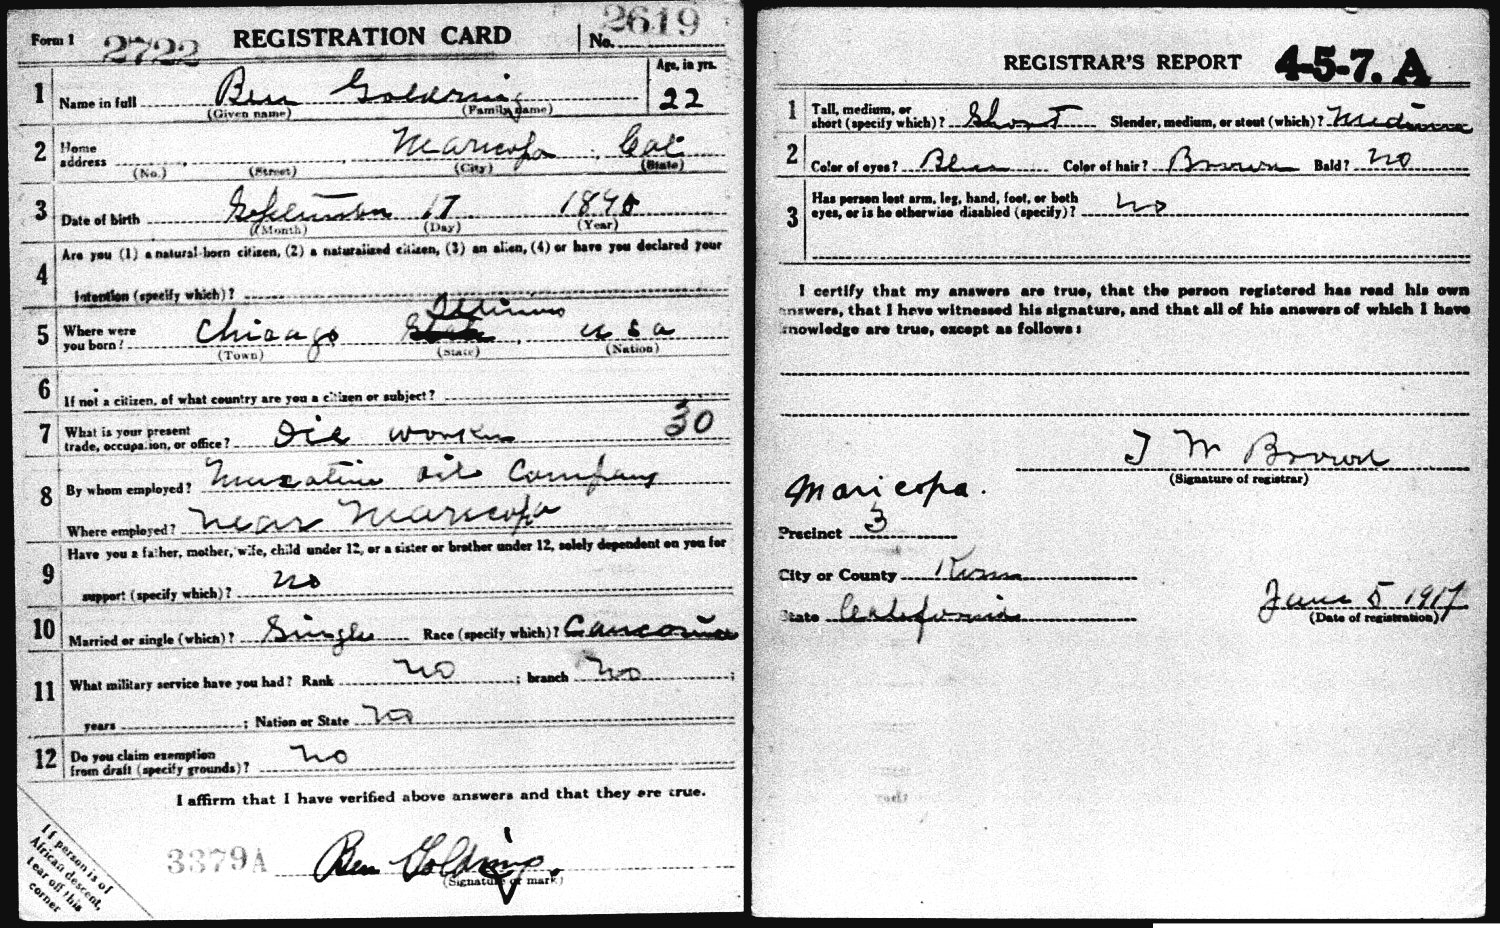 Form 1 2722 REGISTRATION CARD No. 2619
1 Name in full Ben Goldring Age, in yrs. 22
(Given name) (Family name)
2 Home address Maricopa, Cal
(No.) (Street) (City) (State)
3 Date of birth September 17 189
(Month) (Day) (Year)
4 Are you (1) a natural-born citizen, (2) a naturalized citizen, (3) an alien, (4) or have you declared your
intention (specify which)?
5 Where were you born? Chicago Illinois U S A
(Town) (State) (Nation)
6 If not a citizen, of what country are you a citizen or subject?
7 What is your present trade, occupation, or office? Oil worker 30
8 By whom employed? oil Company
Where employed? Near Maricopa
9 Have you a father, mother, wife, child under 12, or a sister or brother under 12, solely dependent on you for
support (specify which)? no
10 Married or single (which)? Single Race (specify which)? Caucasian
11 What military service have you had? Rank no ; branch no ;
years ; Nation or State no
12 Do you claim exemption from draft (specify grounds)? no
I affirm that I have verified above answers and that they are true.
3379A Ben Goldring.
(Signature or mark)
If person is of
African descent,
tear off this
corner
REGISTRAR'S REPORT 4-5-7. A
1 Tall, medium, or short (specify which)? Short Slender, medium, or stout (which)? Medium
2 Color of eyes? Blue Color of hair? Brown Bald? no
3 Has person lost arm, leg, hand, foot, or both
eyes, or is he otherwise disabled (specify)? no
I certify that my answers are true, that the person registered has read his own
answers, that I have witnessed his signature, and that all of his answers of which I have
knowledge are true, except as follows:
J M Brown
(Signature of registrar)
Maricopa.
Precinct 3
City or County Kern
State California
June 5 1917
(Date of registration)